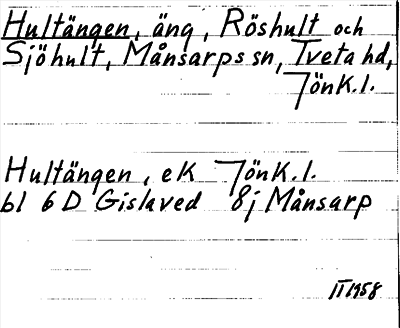 Hultängen, äng, Röshult och
Sjöhult, Månsarps sn, Tveta hd,
JönK.l.
Hultängen, eK JönK.l.
bl 6D Gislaved 8j Månsarp
II 1958